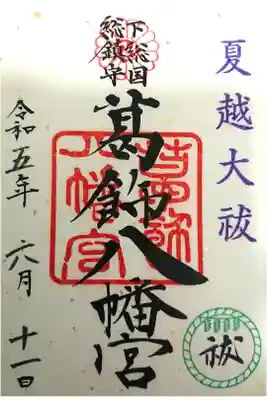 夏越大祓
下総国
総鎮守
葛飾八幡宮
葛飾
八幡宮
令和五年 六月 十一日
祓